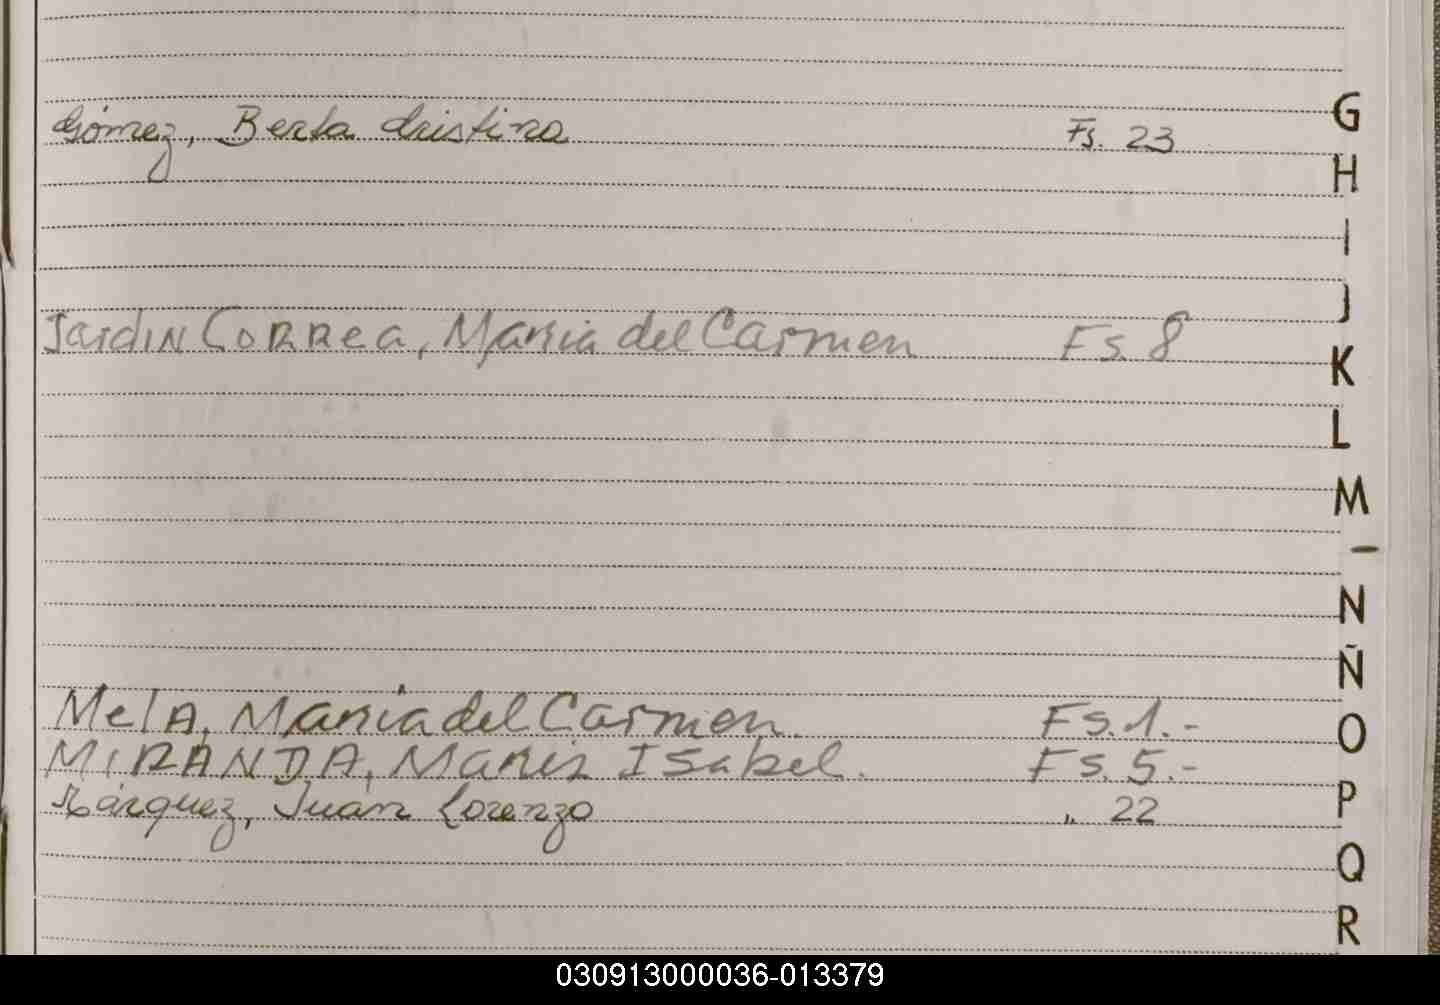 Gómez, Berta Cristina Fs. 23
Jardin Correa, Maria del Carmen Fs. 8
Mela, Maria del Carmen. Fs. 1.-
MIRANDA, Maria Isabel. Fs. 5.-
Márquez, Juán Lorenzo " 22
G
H
I
J
K
L
M
N
Ñ
O
P
Q
R
030913000036-013379